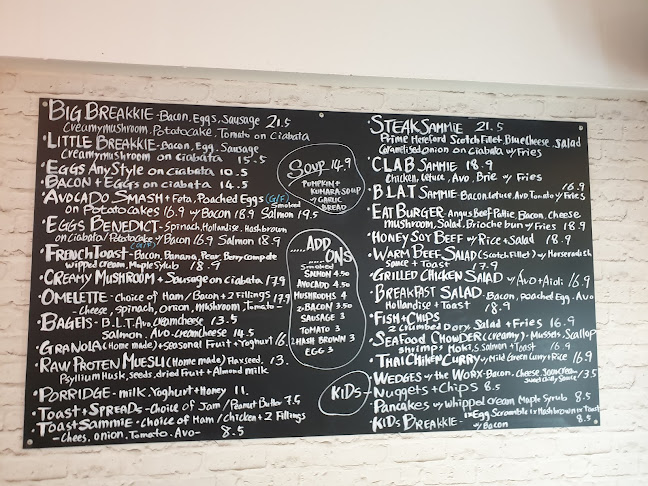 • BIG BREAKKIE - Bacon, Eggs, Sausage 21.5
Creamy mushroom, Potatocake, Tomato on Ciabata
• LITTLE BREAKKIE - Bacon, Egg, Sausage
Creamymushroom on ciabata 15.5
• EGGS ANY STYLE on Ciabata 10.5
• BACON + EGGS on Ciabata 14.5
• AVOCADO SMASH + Feta, Poached Eggs (G/F)
on Potatocakes 16.9 w/ Bacon 18.9 Smoked Salmon 19.5
• EGGS BENEDICT - Spinach, Hollandise, Hashbrown
on Ciabata/Potatocake (G/F) w/ Bacon 16.9 Salmon 18.9
• FRENCH TOAST - Bacon, Banana, Pear, Berry compote
wipped cream, Maple Syrub 18.9
• CREAMY MUSHROOM + Sausage on Ciabata 17.9
• OMELETTE - Choice of Ham/Bacon + 2 Fillings 17.9
- Cheese, spinach, onion, Mushroom, Tomato -
• BAGELS - B.L.T. Avo. creamcheese 13.5
Salmon. Avo. creamcheese 14.5
• GRANOLA (Home made) + seasonal Fruit + Yoghurt 16.
• RAW PROTEN MUESLI (Home made) Flaxseed, 13.
Psyllium Husk, seeds, dried Fruit + Almond milk
• PORRIDGE - milk, Yoghurt + Honey 11.
• TOAST + SPREADS - Choice of Jam / Peanut Butter 7.5
• TOAST SAMMIE - Choice of Ham/Chicken + 2 Fillings
- Chees, onion, Tomato, Avo - 8.5
SOUP 14.9
PUMPKIN +
KUMARA SOUP
w/ GARLIC
BREAD
ADD
.....ONS.....
Smoked
SALMON 4.50
AVOCADO 4.50
MUSHROOMS 4
2x BACON 3.50
SAUSAGE 3
TOMATO 3
2 HASH BROWN 3
EGG 3
KIDS
• STEAK SAMMIE 21.5
Prime Hereford Scotch Fillet, Blue Cheese, Salad
Caramelised onion on Ciabata w/ Fries
• CLAB SAMMIE 18.9
Chicken, Letuce, Avo, Brie w/ Fries
• B.L.A.T SAMMIE - Bacon, Letuce, Avo, Tomato w/ Fries 16.9
• EAT BURGER - Angus Beef Pattie, Bacon, Cheese
mushroom, Salad, Brioche bun w/ Fries 18.9
• HONEY SOY BEEF w/ Rice + Salad 18.9
• WARM BEEF SALAD (Scotch fillet) w/ Horseradish
Sauce + Toast 17.9
• GRILLED CHICKEN SALAD w/ Avo + Aioli 16.9
• BREAKFAST SALAD - Bacon, Poached Egg, Avo
Hollandise + Toast 18.9
• FISH + CHIPS
2 Crumbed Dory, Salad + Fries 16.9
• SEAFOOD CHOWDER (creamy) - Mussels, Scallop
shrimps, Hoki, Salmon + Toast 16.9
• THAI CHIKEN CURRY w/ Mild Green Curry + Rice 16.9
• WEDGES w/ the WORX - Bacon, Cheese, Sour Cream, Sweet Chilly Sauce 13.5
• NUGGETS + CHIPS 8.5
• PANCAKES w/ Whipped cream Maple Syrub 8.5
• KIDS BREAKKIE - 1x Egg Scramble 1x Hashbrown 1x Toast
w/ Bacon 8.5